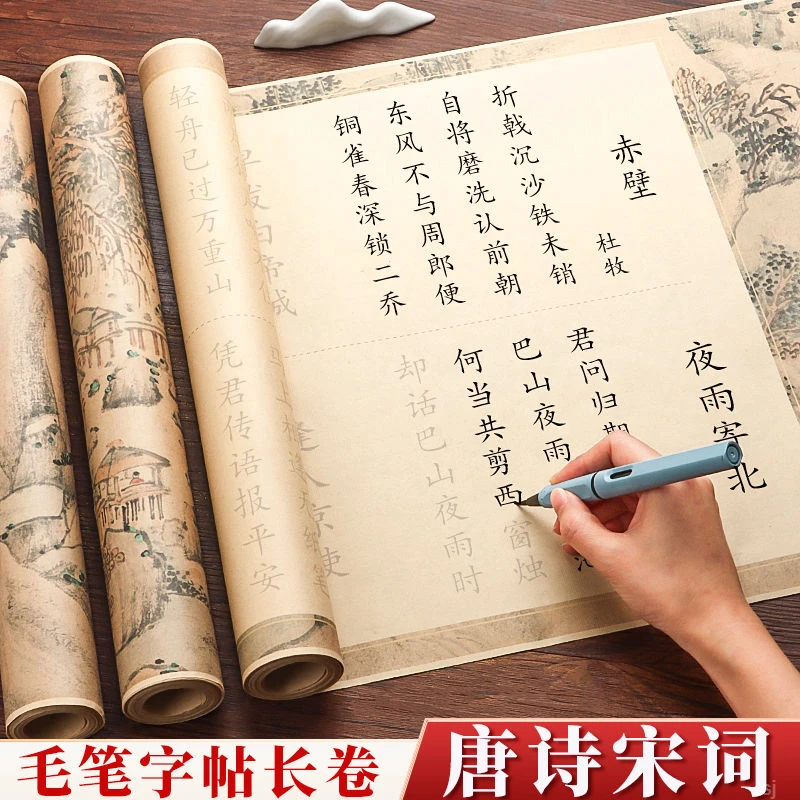 赤壁
杜牧
折戟沉沙铁未销
自将磨洗认前朝
东风不与周郎便
铜雀春深锁二乔
夜雨寄北
君问归期
巴山夜雨
何当共剪西窗烛
却话巴山夜雨时
发白帝城
轻舟已过万重山
逢入京使
凭君传语报平安
毛笔字帖长卷
唐诗宋词